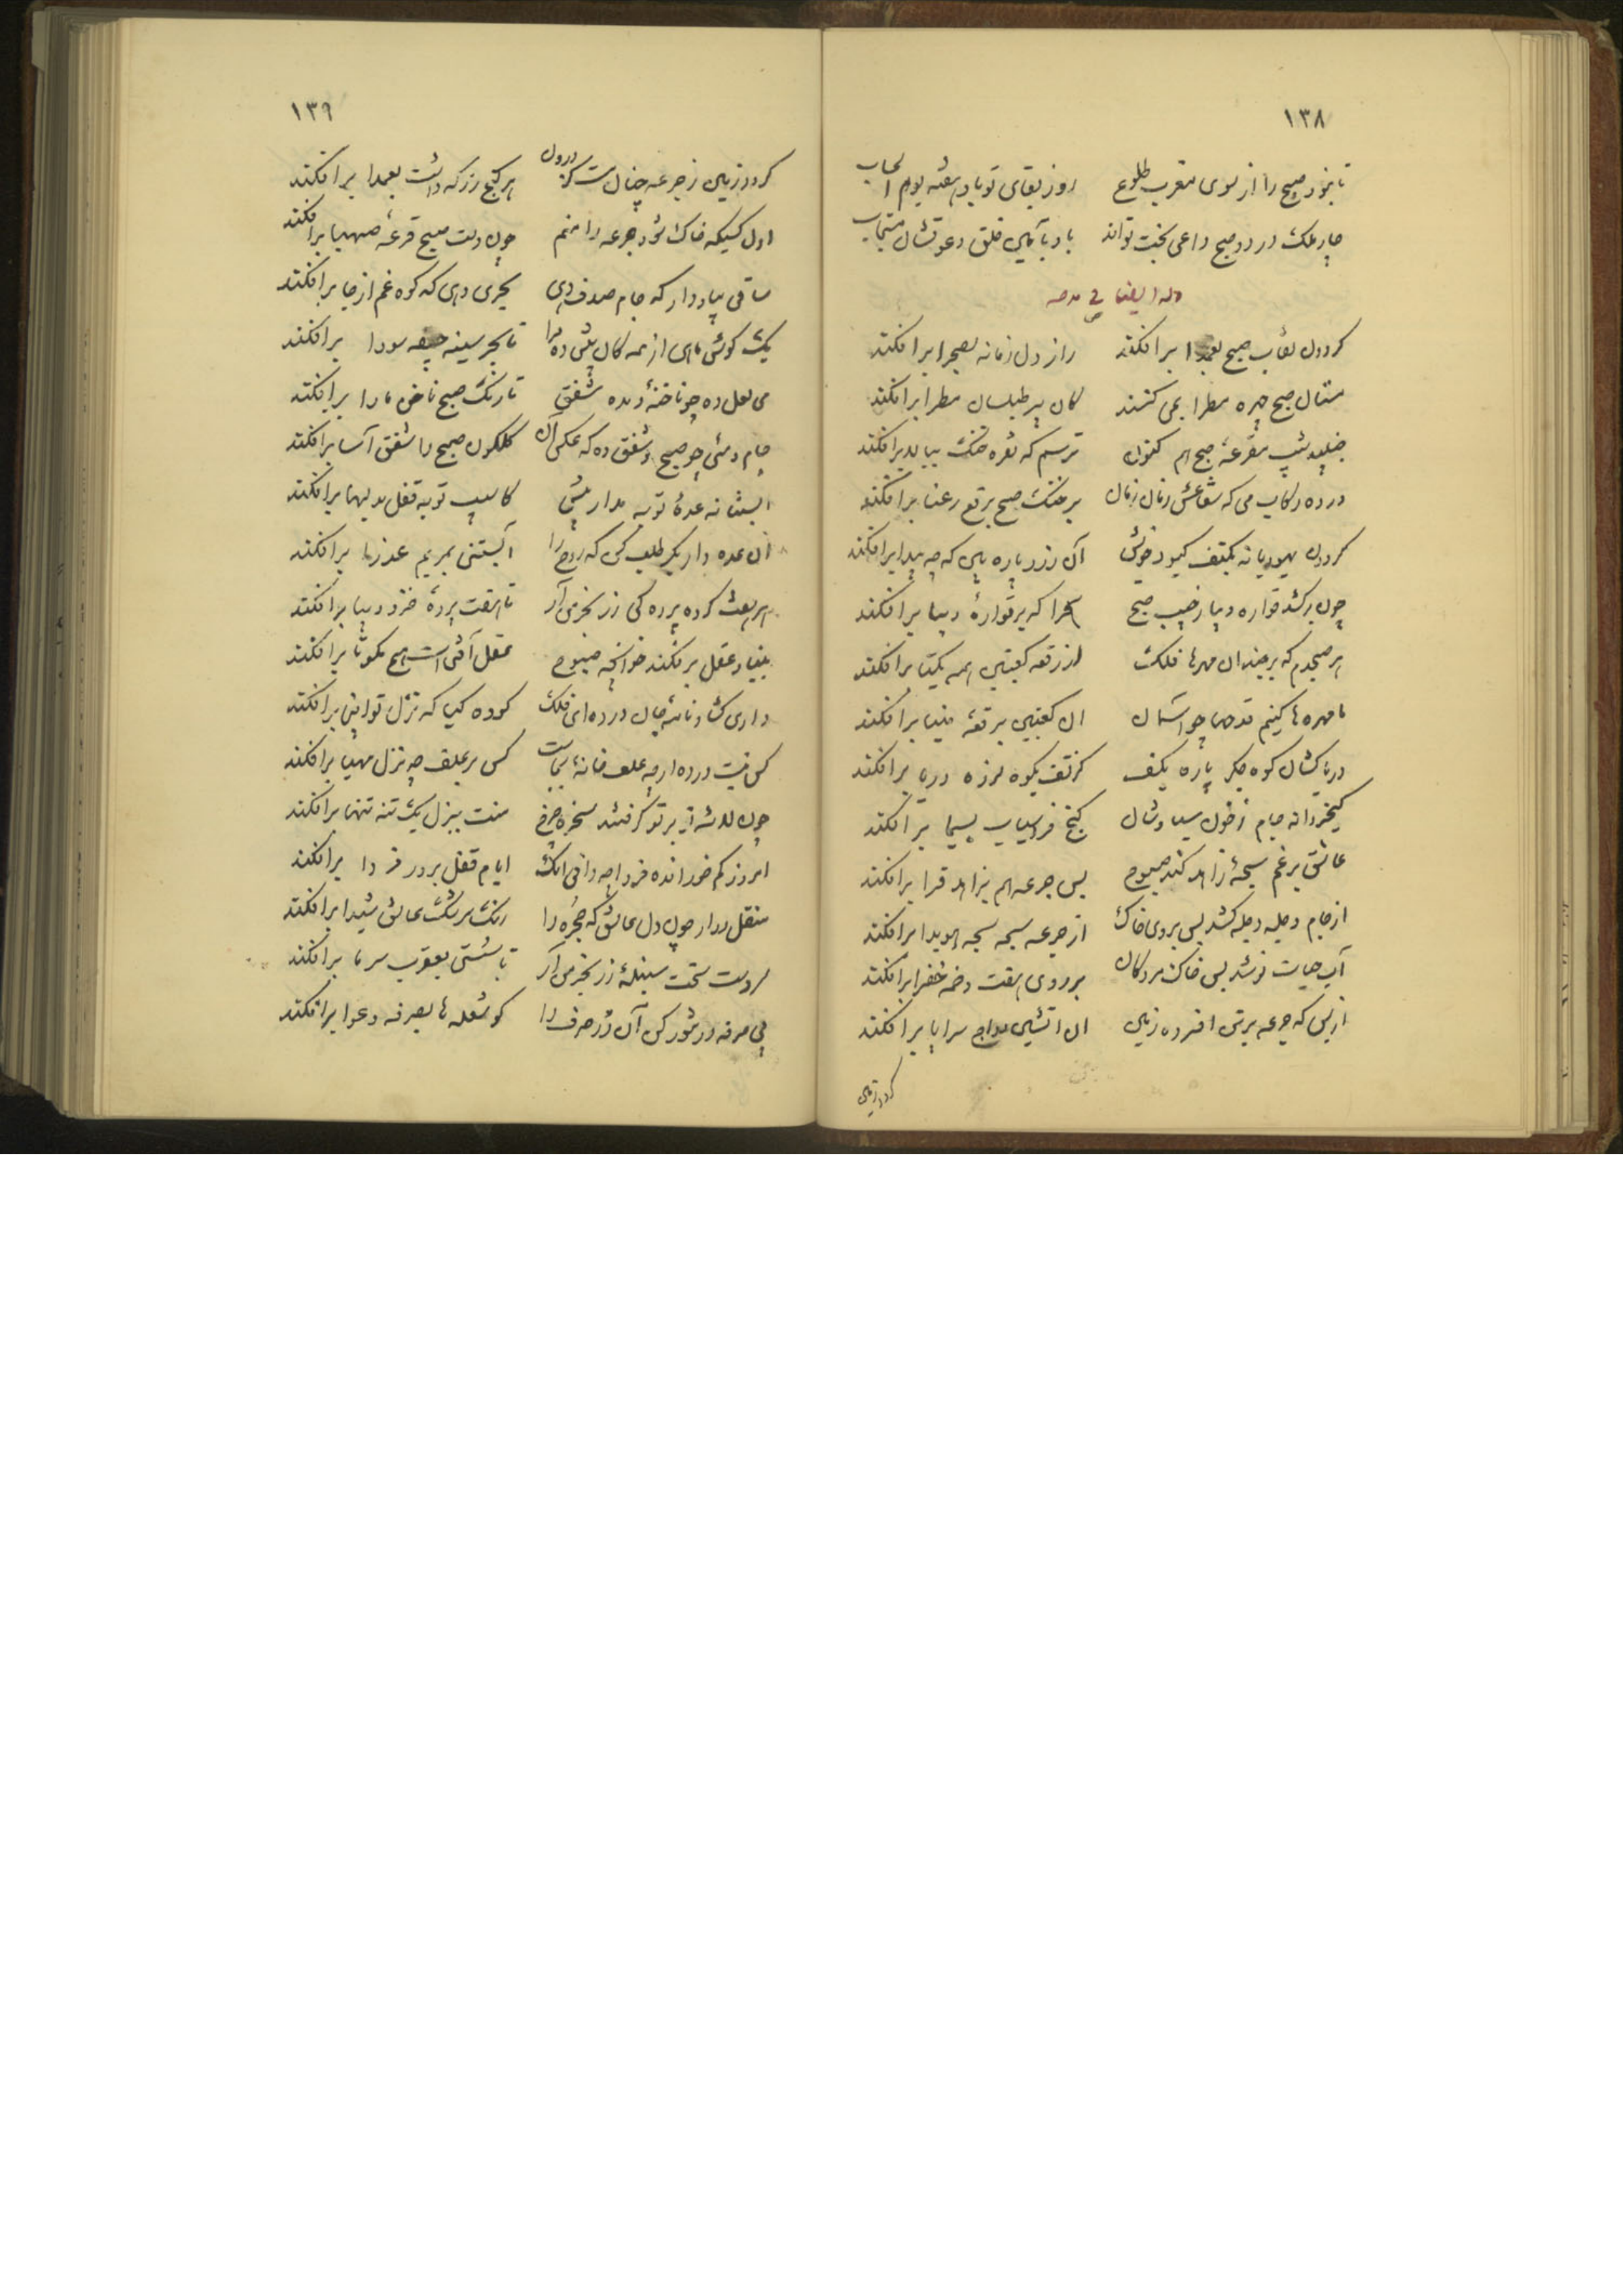 ۱۳۸
تا نبود صبح را از سوی مغرب طلوع روز بقای تو باد هفته یوم الحساب
چار ملک در دو صبح داعی بخت تواند باد بآمین خلق دعوتشان مستجاب
وله ایضا فی مدحه
گردون نقاب صبح بعمدا برافکند راز دل زمانه بصحرا برافکند
مستان صبح چهره مطرا بمی کنند کاین پیر طیلسان مطرا برافکند
جنبید شیب مقرعه صبحدم کنون ترسم که نقره خنک ببالا برافکند
در ده رکاب می که شعاعش زنان زنان بر خنک صبح برقع رعنا برافکند
گردون یهودیانه بکتف کبود خویش آن زرد پاره بین که چه پیدا برافکند
چون برکشد قواره دیبا ز جیب صبح سحرا که بر قوارهٔ دیبا برافکند
هر صبحدم که برچیند آن مهرها فلک بر رقعه کعبتین همه یکتا برافکند
ما مهره ها کنیم قدحها چو آسمان آن کعبتین برقعه مینا برافکند
دریا کشان کوه جگر باره بکف کز تف بکوه لرزه دریا برافکند
کیخسروانه جام ز خون سیاوشان گنج فراسیاب بسیما برافکند
عاشق برغم سبحهٔ زاهد کند صبوح بس جرعه هم بزاهد قرا برافکند
از جام دجله دجله کشد پس بروی خاک از جرعه سبحه سبحه هویدا برافکند
آب حیات نوشد پس خاک مردگان بر روی هفت دخمه خضرا برافکند
از بس که جرعه بر تن افسرده زمین آن آتشین دواج سراپا برافکند
گردد زمین
۱۳۹
گردد زمین ز جرعه چنان مست کز درون هر گنج زر که داشت بعمدا برافکند
اول کسیکه خاک شود جرعه را منم چون دست صبح قرعه صهبا برافکند
ساقی بیاد دار که جام صدف دهی بحری دهی که کوه غم از جا برافکند
یک گوش ماهی از همه کان بیش ده مرا تا بحر سینه جیفه سودا برافکند
می لعل ده چو ناخنهٔ دیده شفق تا رنگ صبح ناخن ما را برافکند
جام و می چو صبح و شفق ده که عکس آن گلگون صبح را شفق آسا برافکند
آبستانه عدهٔ توبه مدار بیش کاسیب توبه قفل بدلها برافکند
آن عده دار بکر طلب کن که روح را آبستنی بمریم عذرا برافکند
هر هفت کرده پردگی رز بخرمی آر تا هفت پردهٔ خرد ما برافکند
بنیاد عقل برفکند خوانچه صبوح عقل آفت است هیچ مگو تا برافکند
داری گشاد نامه جان در ده ای فلک گو ده کیا که نزل تو اینجا برافکند
کس نیست در ده ارچه علف خانهٔ بجاست کس بر علف چه نزل مهیا برافکند
چون لاشه تو بر تو گرفتند سخره چرخ منت بنزل یک تنه تنها برافکند
امروز کم خور انده فردا چه دانی آنک ایام قفل بر در فردا برافکند
منقل درآر چون دل عاشق که حجره را رنگ سرشک عاشق شیدا برافکند
سردست سخت سنبلهٔ رز بخرمن آر تا سستی بعقرب سرما برافکند
بی صرفه در تنور کن آن زر صرف را کو شعله ها بصرفه و عوا برافکند